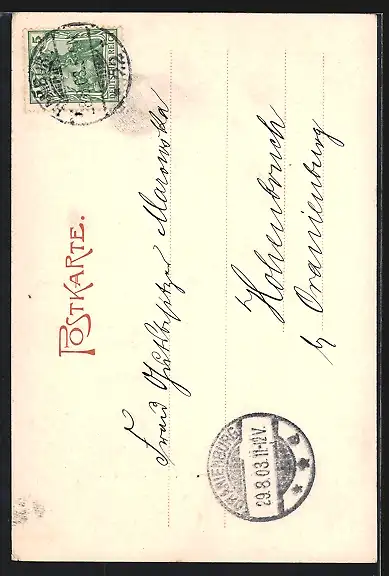 POSTKARTE.
Frau Gutsbesitzer Maronska
Hohenbruch
b/ Oranienburg
5
DEUTSCHES REICH
ORANIENBURG
29.8.03.11-12V.